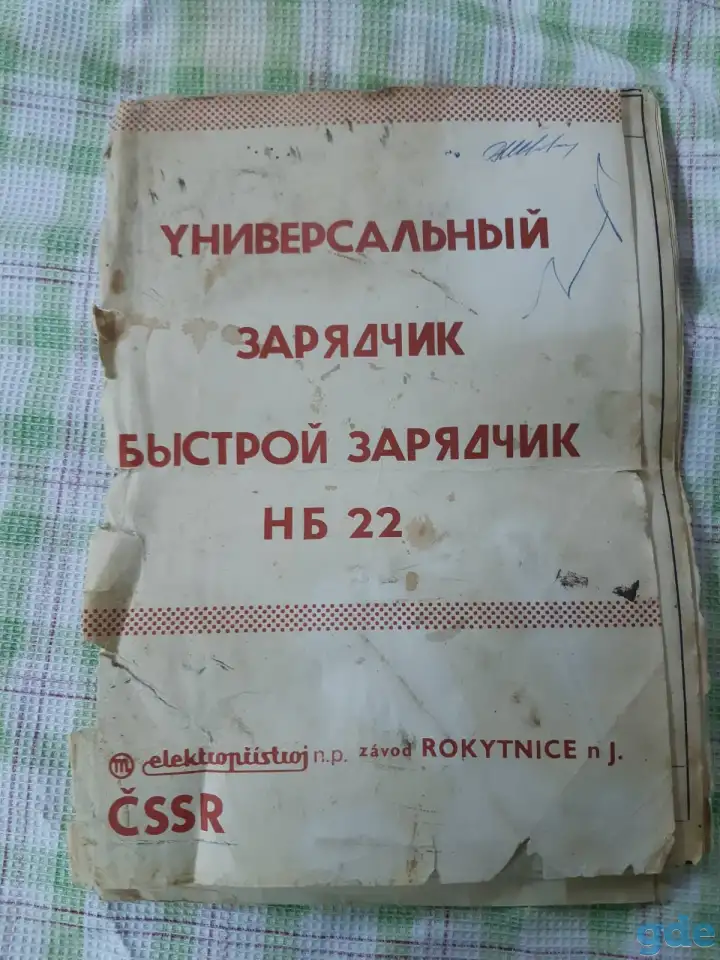 УНИВЕРСАЛЬНЫЙ
ЗАРЯДЧИК
БЫСТРОЙ ЗАРЯДЧИК
НБ 22
elektropřístroj n.p. závod ROKYTNICE n J.
ČSSR
gde